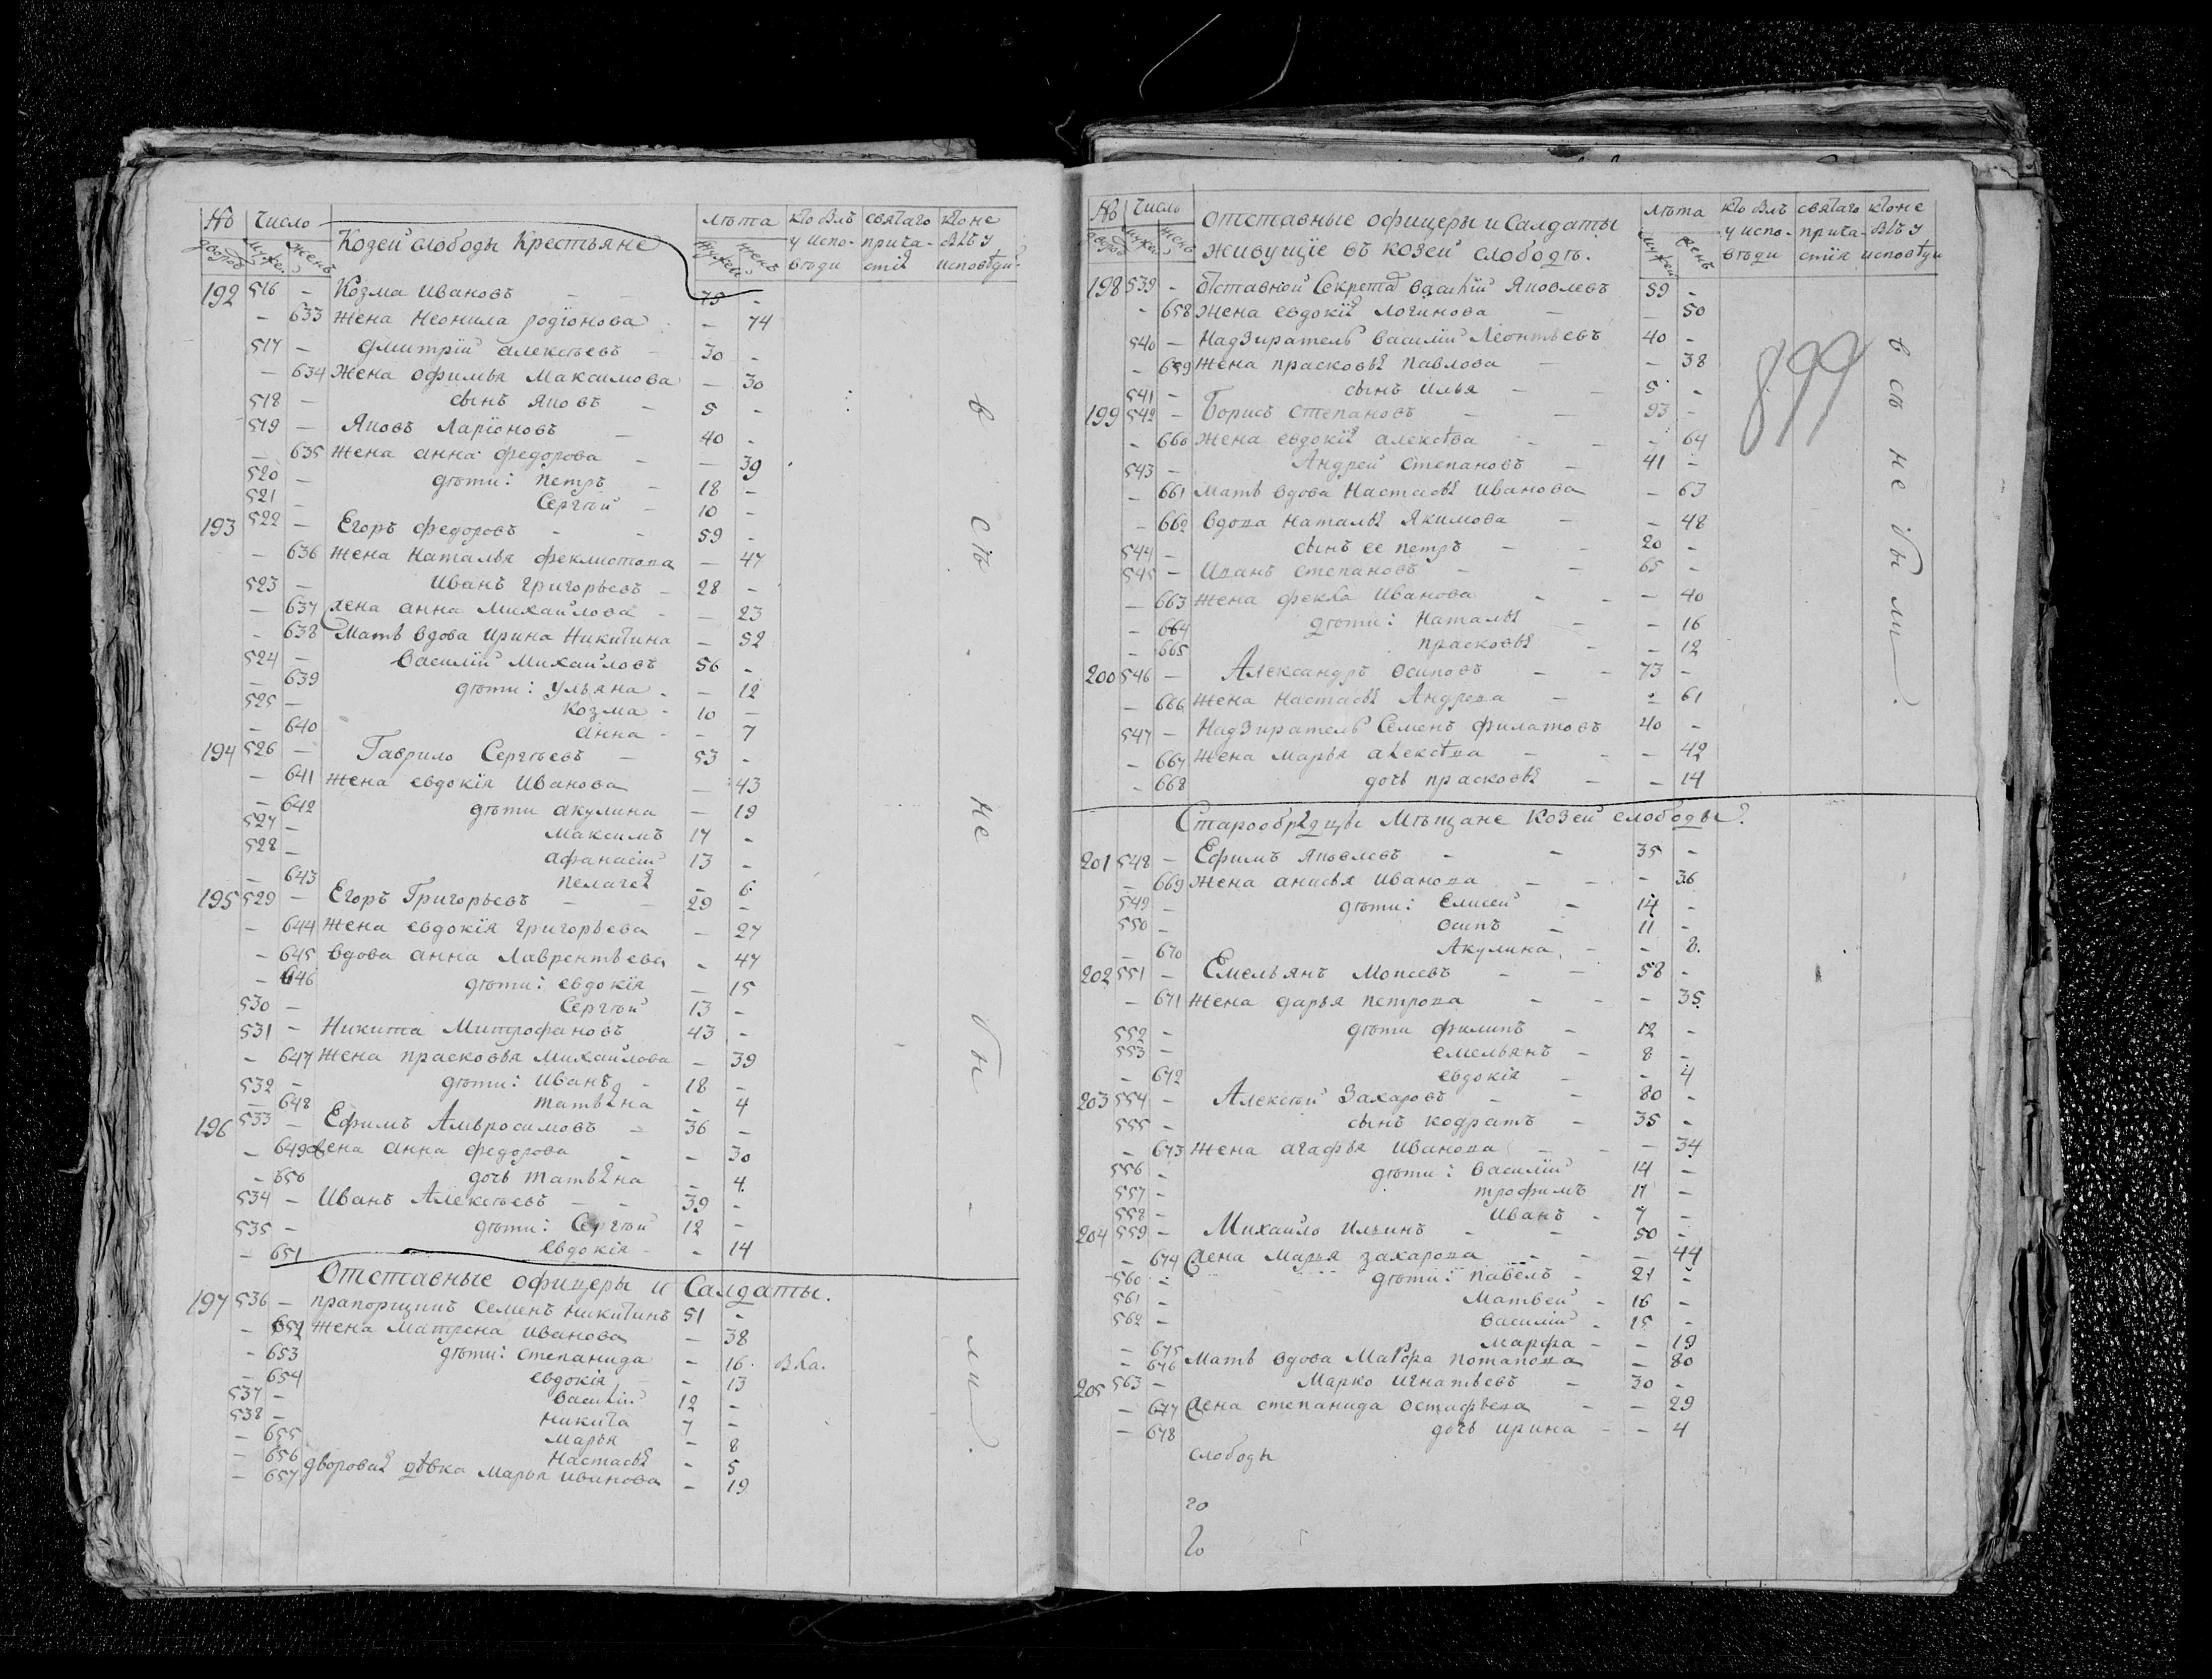 № Число Козей слободы Крестьяне лѣта кто былъ святаго кто не
дворов мужес. женъ мужей женъ у испо- прича- былъ у
вѣди стія исповѣди
192 516 – Козма Ивановъ – 75 –
– 633 жена Неонила родіонова – 74
517 – Дмитрій алексѣевъ – 30 –
– 634 жена офимья Максимова – 30
518 – сынъ Яковъ – 5 –
519 – Яковъ Ларіоновъ – 40 –
– 635 жена анна федорова – – 39
520 – дѣти: петръ – 18 –
521 – Сергѣй – 10 –
193 522 – Егоръ федоровъ – – 59 –
– 636 жена наталья феклистова – 47
523 – Иванъ григорьевъ – 28 –
– 637 жена анна михайлова – – 23
– 638 Мать вдова ирина Никитина – 52
524 – василій михайловъ 56 –
– 639 дѣти: ульяна – – 12
525 – козма – 10 –
– 640 анна – – 7
194 526 – Гаврило Сергѣевъ – 53 –
– 641 жена евдокія Иванова – 43
– 642 дѣти акулина – 19
527 – максимъ 17 –
528 – афанасій 13 –
– 643 пелагея – 6
195 529 – Егоръ Григорьевъ – – 29 –
– 644 жена евдокія григорьева – 27
– 645 вдова анна Лаврентьева – 47
– 646 дѣти: евдокія – 15
530 – Сергѣй 13 –
531 – Никита Митрофановъ 43 –
– 647 жена прасковья михайлова – 39
532 – дѣти: Иванъ – 18 –
– 648 татьяна – 4
196 533 – Ефимъ Амвросимовъ – 36 –
– 649 жена анна федорова – – 30
– 650 дочь татьяна – 4
534 – Иванъ Алексѣевъ – – 39 –
535 – дѣти: Сергѣй 12 –
– 651 евдокія – – 14
Отставные офицеры и Салдаты.
197 536 – прапорщикъ Семенъ никитинъ 51 –
– 652 жена матрена иванова – 38
– 653 дѣти: степанида – 16.
– 654 евдокія – – 13
537 – василій 12 –
538 – никита 7 –
– 655 марья – 8
– 656 Настасья – 5
– 657 дворовая дѣвка марья иванова – 19
всѣ не были.
№ Числъ отставные офицеры и Салдаты лѣта кто былъ святаго кто не
дворов мужес. женъ живущіе въ козей слободѣ. мужей женъ у испо- прича- былъ у
вѣди стія исповѣди
198 539 – Отставной Секретар василій Яковлевъ 59 –
– 658 жена евдокія логинова – – 50
540 – Надзиратель василій леонтьевъ 40 –
– 659 жена прасковья павлова – – 38
541 – сынъ илья – – 5 –
199 542 – Борисъ степановъ – – 93 –
– 660 жена евдокія алексѣева – – – 64
543 – Андрей степановъ – 41 –
– 661 мать вдова Настасья Иванова – 63
– 662 вдова наталья Якимова – – 48
544 – сынъ ее петръ – – 20 –
545 – Иванъ степановъ – – 65 –
– 663 жена фекла иванова – – – 40
– 664 дѣти: наталья – – 16
– 665 прасковья – – 12
200 546 – Александръ осиповъ – – 73 –
– 666 жена настасья Андреева – – 61
547 – Надзиратель Семенъ филатовъ 40 –
– 667 жена марья алексѣева – – – 42
– 668 дочь прасковья – – 14
Старообрядцы Мѣщане козей слободы.
201 548 – Ефимъ яковлевъ – – 35 –
– 669 жена анисья иванова – – – 36
549 – дѣти: елисей – 14 –
550 – осипъ – 11 –
– 670 Акулина – – 8.
202 551 – Емельянъ моисеевъ – – 58 –
– 671 жена дарья петрова – – – 35
552 – дѣти филипъ – 12 –
553 – емельянъ – 8 –
– 672 евдокія – – 4
203 554 – Алексѣй Захаровъ – – 80 –
555 – сынъ кодратъ – 35 –
– 673 жена агафья иванова – – – 34
556 – дѣти: василій 14 –
557 – трофимъ 11 –
558 – иванъ – 7 –
204 559 – Михайло ильинъ – – 50 –
– 674 жена марья захарова – – – 44
560 – дѣти: павелъ – 21 –
561 – матвей – 16 –
562 – василій – 15 –
– 675 марфа – – 19
– 676 мать вдова марфа потапова – 80
205 563 – Марко игнатьевъ – 30 –
– 677 жена степанида остафьева – – 29
– 678 дочь ирина – – 4
слободы
го
го
899
всѣ не были.